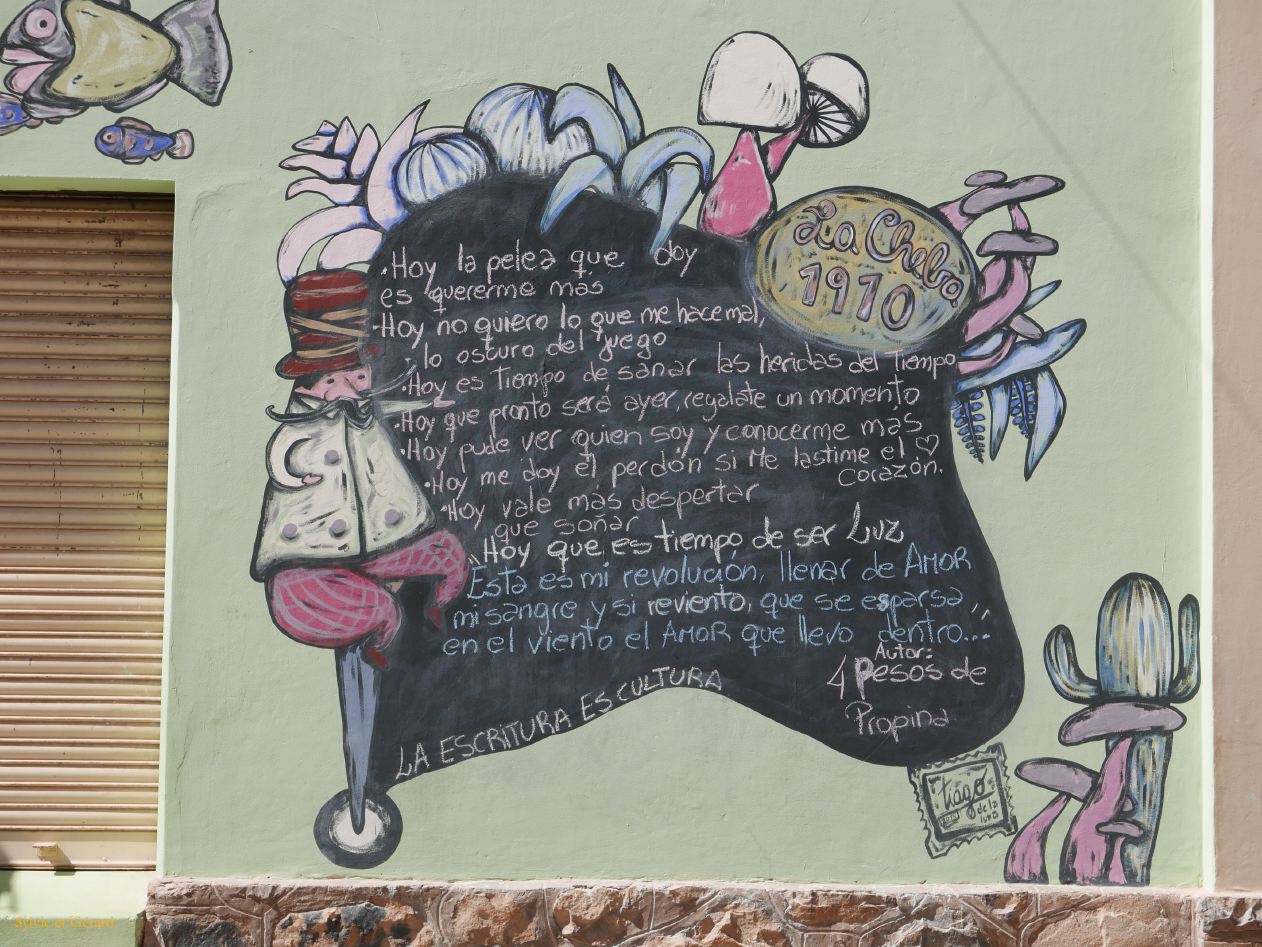 La Cheba
1910
•Hoy la pelea que doy
es quererme mas
•Hoy no quiero lo que me hace mal,
lo oscuro del juego
•Hoy es tiempo de sanar las heridas del tiempo
•Hoy que pronto será ayer, regalate un momento
•Hoy pude ver quien soy y conocerme más
•Hoy me doy el perdón si me lastime el ♡
corazón.
•Hoy vale mas despertar
que soñar
•Hoy que es tiempo de ser Luz
Esta es mi revolución, llenar de AMOR
mi sangre y si reviento, que se esparsa,,
en el viento el AMOR que llevo dentro...
Autor:
4 Pesos de
Propina
LA ESCRITURA ES CULTURA
tiago
de la
luna
Sylvie et Gérard